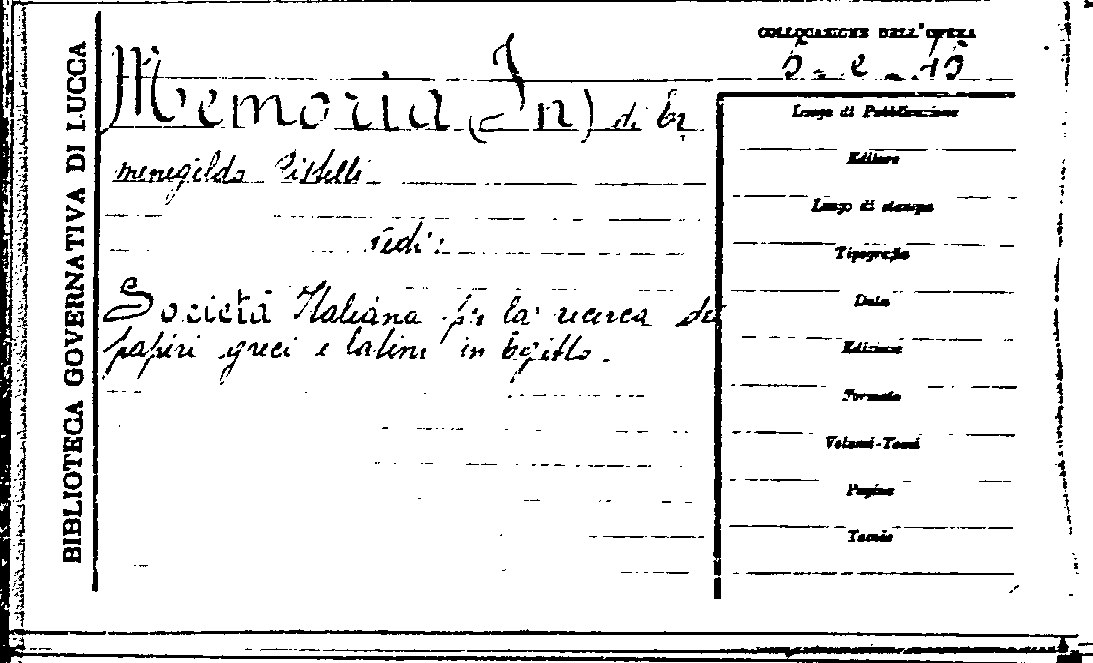 BIBLIOTECA GOVERNATIVA DI LUCCA
COLLOCAZIONE DELL'OPERA
Memoria (In) di Er
menegildo Pistelli
vedi:
Società Italiana per la ricerca dei
papiri greci e latini in Egitto.
Luogo di Pubblicazione
Editore
Luogo di stampa
Tipografia
Data
Edizione
Formato
Volumi-Tomi
Pagine
Tavole